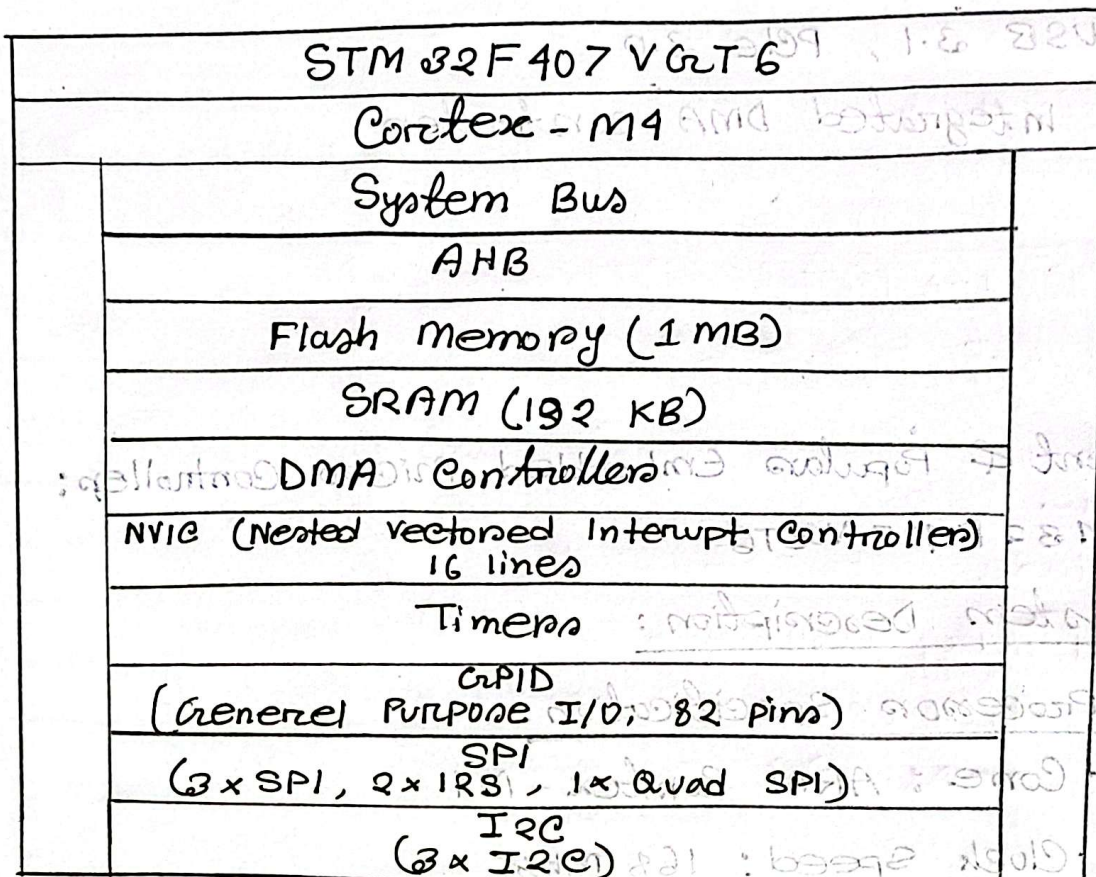 STM 32F 407 VGT6
Cortex - M4
System Bus
AHB
Flash Memory (1 MB)
SRAM (192 KB)
DMA Controllers
NVIC (Nested Vectored Interupt Controller)
16 lines
Timers
GPIO
(General Purpose I/O, 82 pins)
SPI
(3 x SPI, 2 x I2S, 1x Quad SPI)
I2C
(3 x I2C)